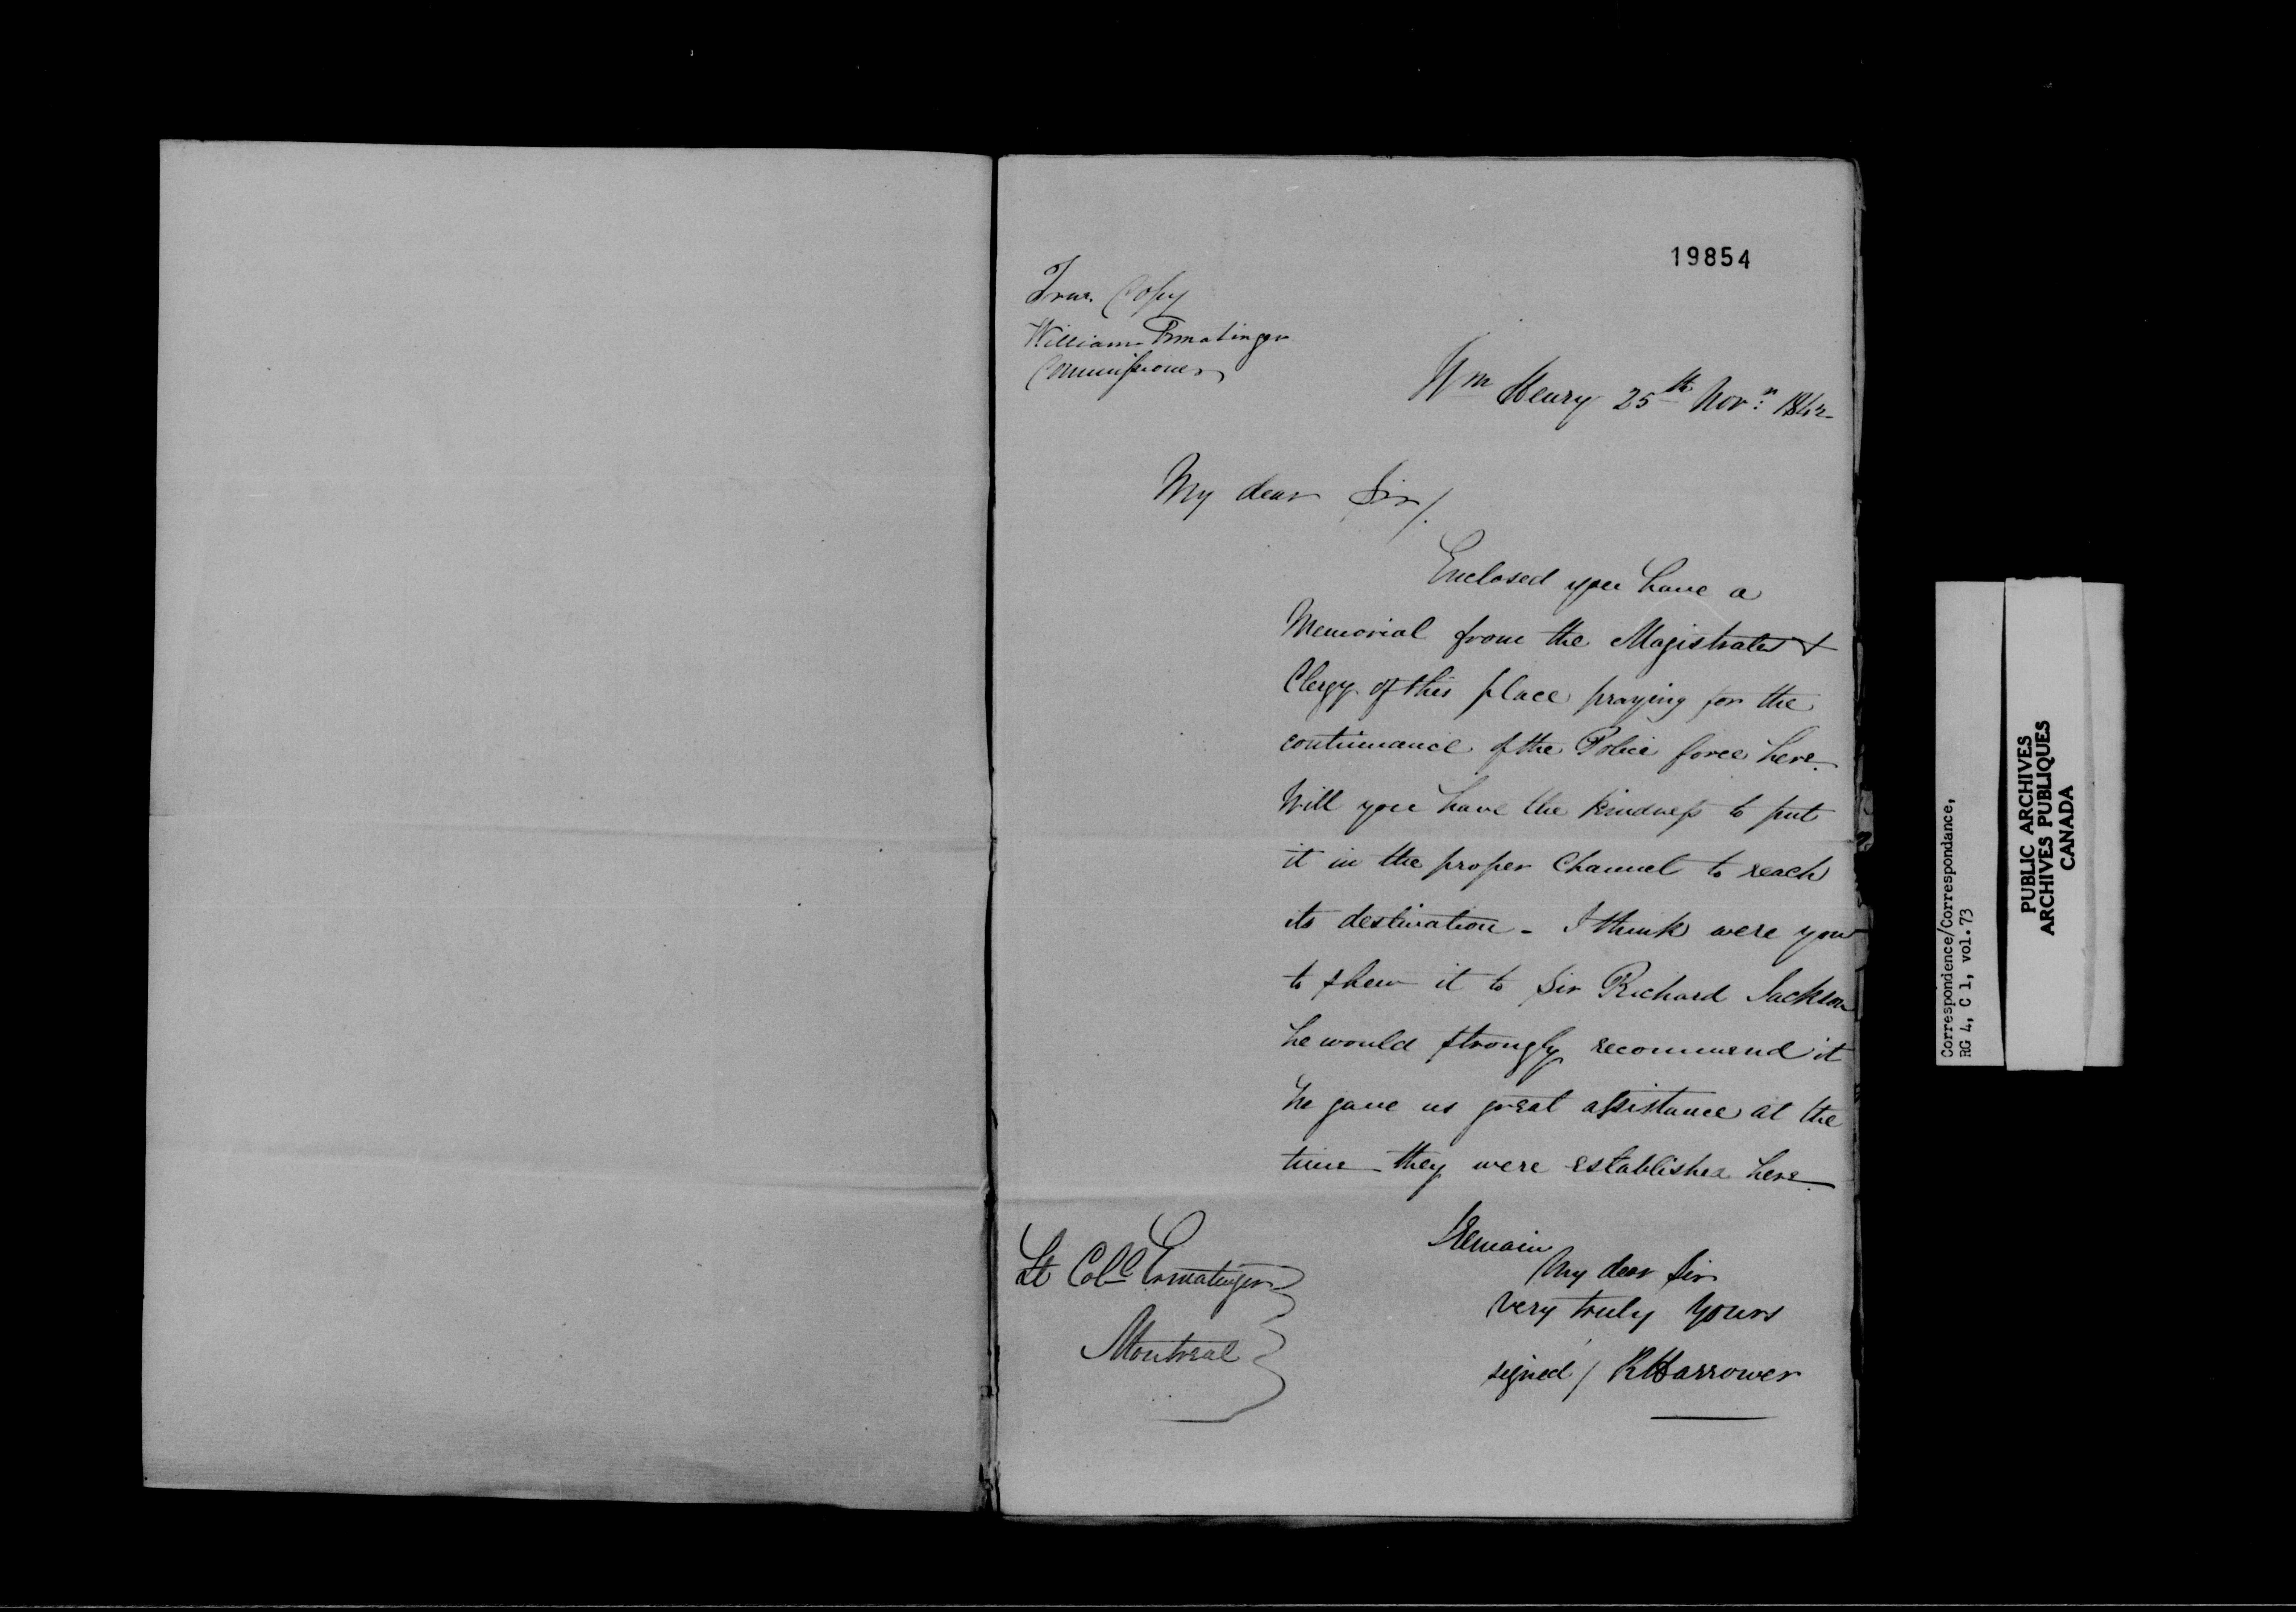 19854
True Copy
William Ermatinger
Commissioner
Wm Henry 25th Novr: 1842
My dear Sir/.
Enclosed you have a
Memorial from the Magistrates &
Clergy of this place praying for the
continuance of the Police force here.
Will you have the kindness to put
it in the proper Channel to reach
its destination - I think were you
to shew it to Sir Richard Jackson
he would strongly recommend it
he gave us great assistance at the
time they were established here.
I Remain
My dear Sir
Very truly Yours
signed / R Harrower
Lt Coll Ermatinger
Montreal
Correspondence/Correspondance,
RG 4, C 1, vol. 73
PUBLIC ARCHIVES
ARCHIVES PUBLIQUES
CANADA